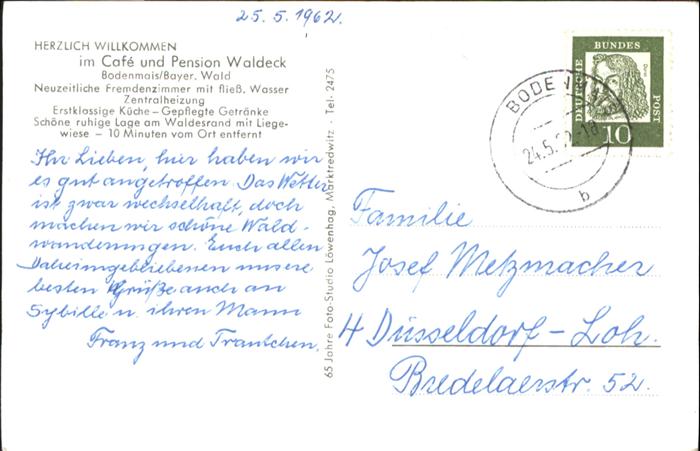 25.5.1962.
HERZLICH WILLKOMMEN
im Café und Pension Waldeck
Bodenmais/Bayer. Wald
Neuzeitliche Fremdenzimmer mit fließ. Wasser
Zentralheizung
Erstklassige Küche – Gepflegte Getränke
Schöne ruhige Lage am Waldesrand mit Liege-
wiese – 10 Minuten vom Ort entfernt
Ihr Lieben, hier haben wir
es gut angetroffen. Das Wetter
ist zwar wechselhaft, doch
machen wir schöne Wald-
wanderungen. Euch allen
Daheimgebliebenen unsere
besten Grüße auch an
Sybille u. ihren Mann
Franz und Trautchen.
65 Jahre Foto-Studio Löwenhag, Marktredwitz · Tel· 2475
DEUTSCHE
BUNDES
POST
Dürer
10
24.5.
b
Familie
Josef Metzmacher
4 Düsseldorf - Loh.
Bredelaerstr. 52.